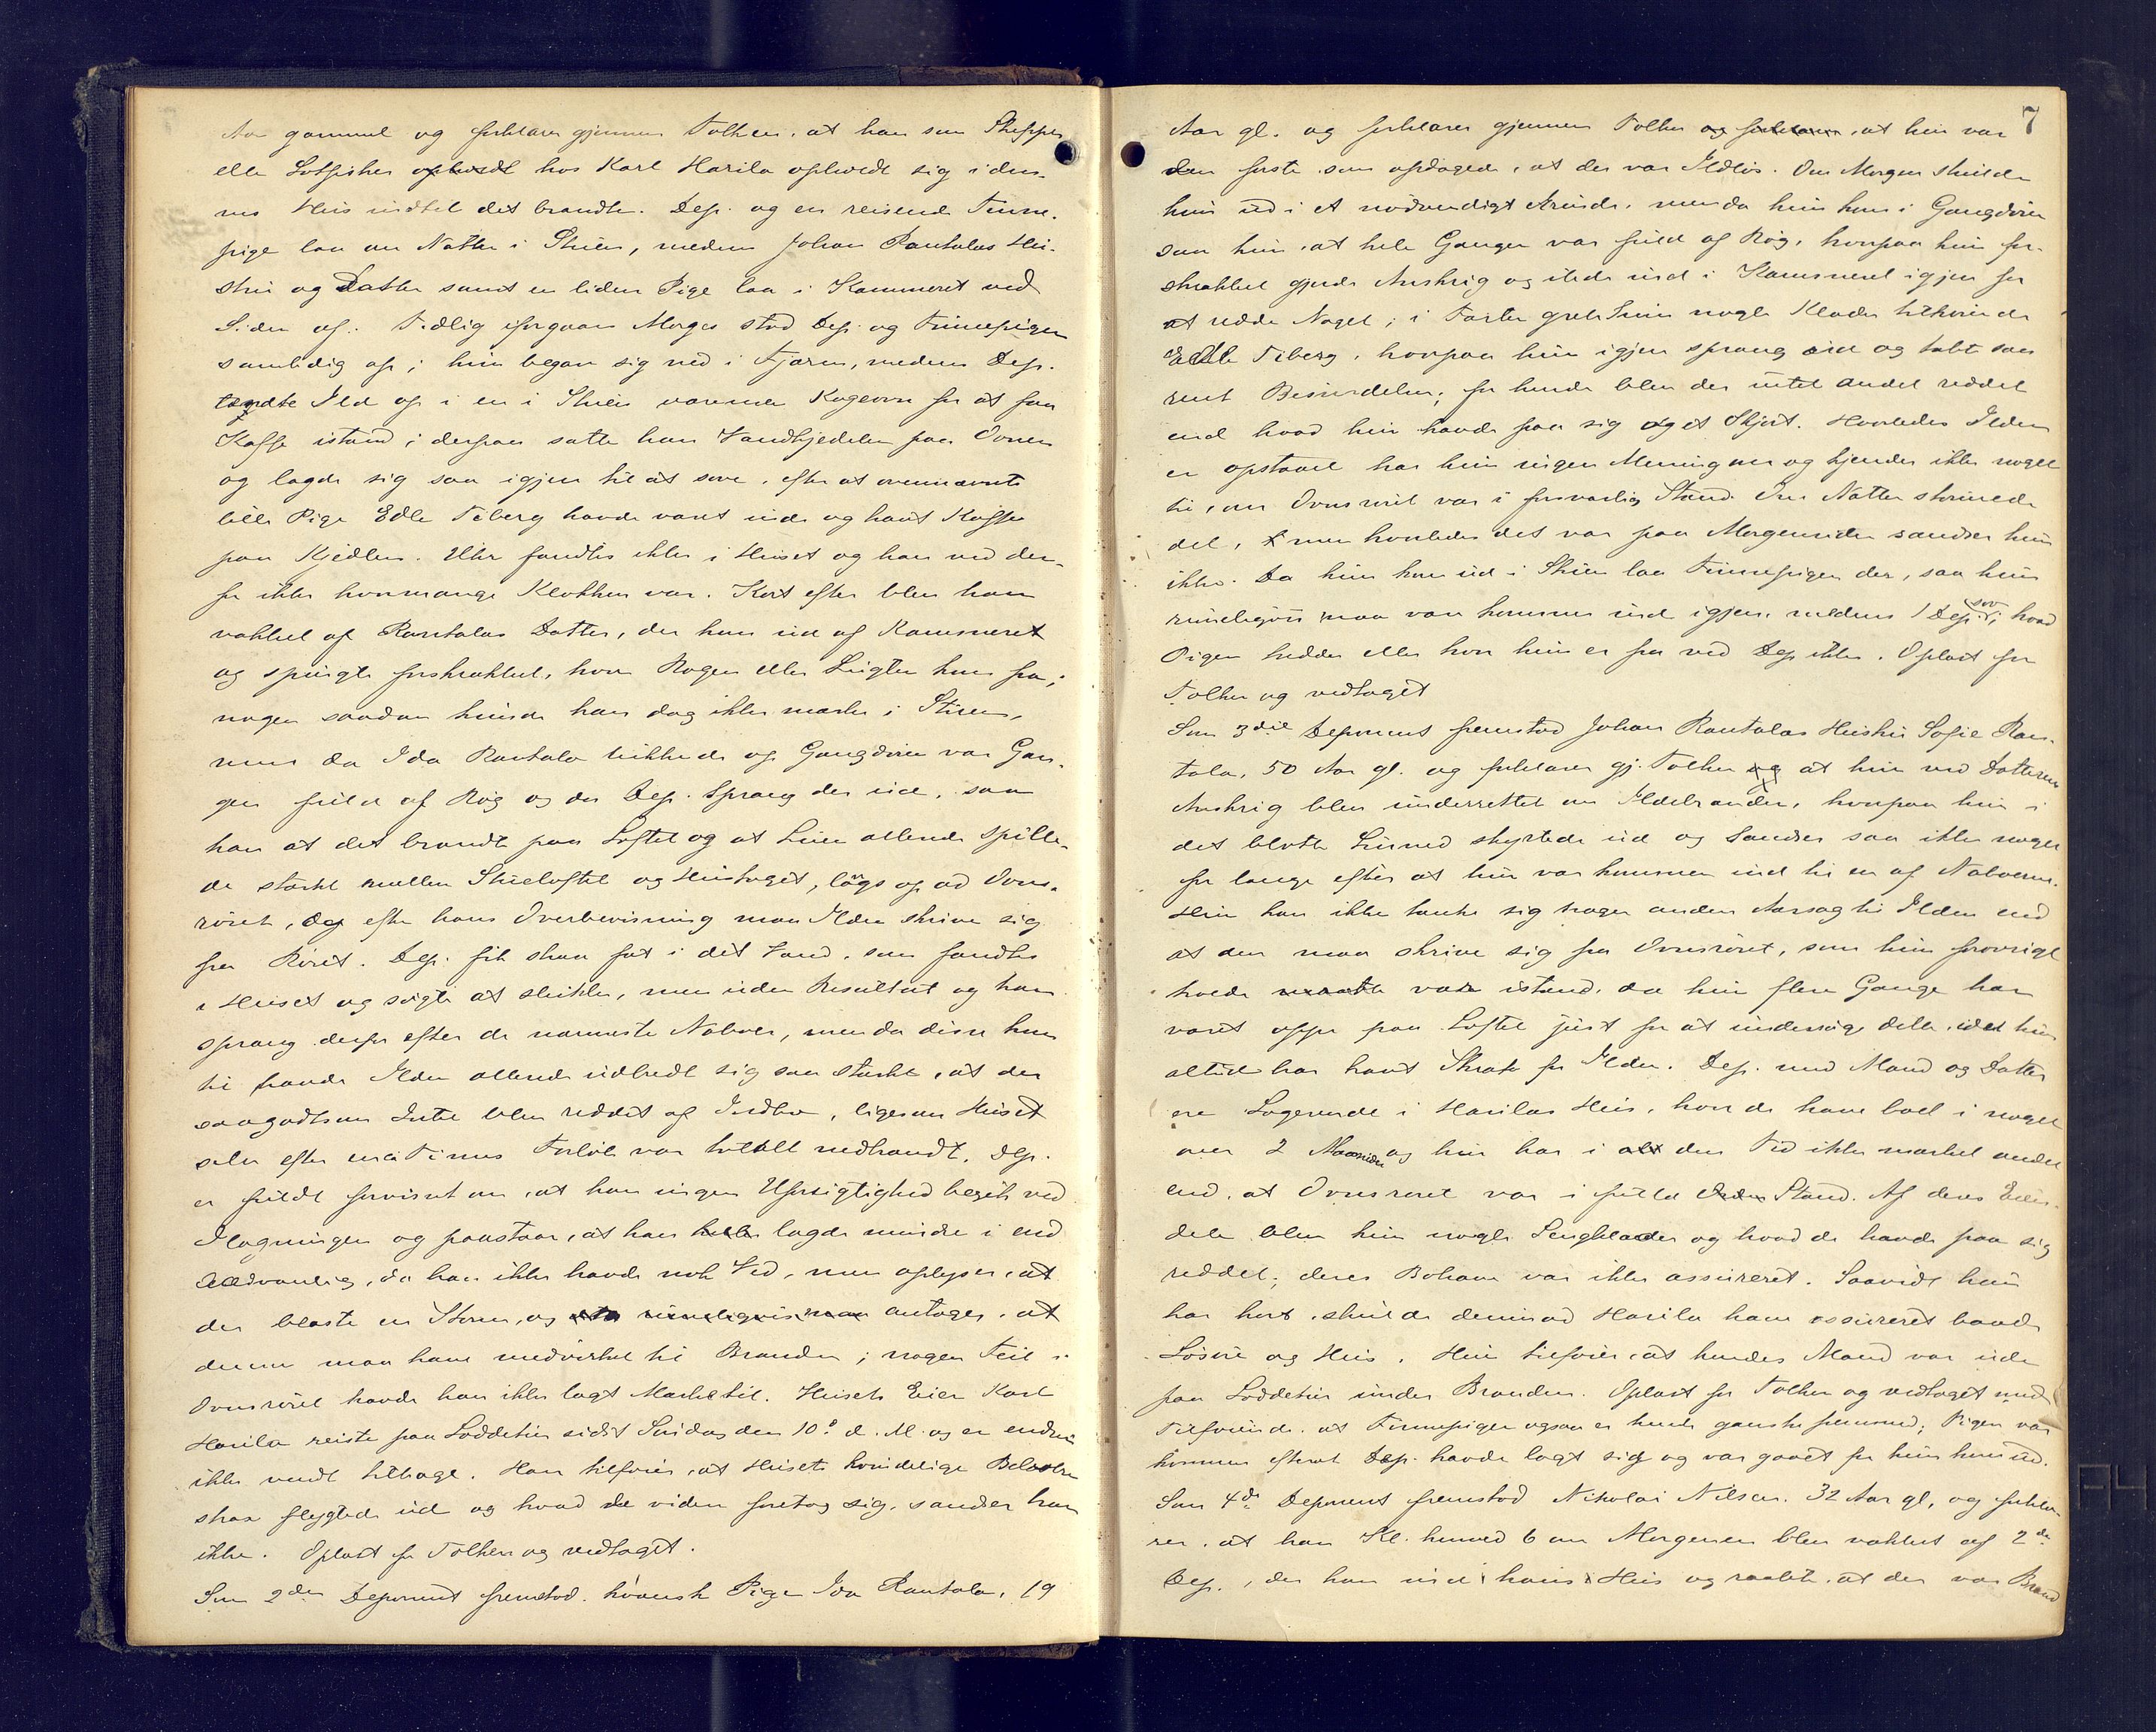 Aar gammel og forklarer gjennem Tolken, at han som Skipper
eller Lotfisker opholdt hos Karl Harila opholdt sig i den-
nes Hus indtil det brandte. Dep. og en reisende Finne-
pige laa om Natten i Stuen, medens Johan Rantalas Hu-
stru og Datter samt en liden Pige laa i Kammeret ved
Siden af. Tidlig iforgaars Morges stod Dep. og Finnepigen
samtidig op; hun begav sig ned i Fjæren, medens Dep.
tændte Ild op i en i Stuen værende Kogeovn for at faa
Kaffe istand; derpaa satte han Vandkjedelen paa Ovnen
og lagde sig saa igjen til at sove, efter at ovennævnte
lille Pige Edle Tiberg havde været inde og havt Kaffe
paa Kjedlen. Uhr fandtes ikke i Huset og han ved der-
for ikke hvormange Klokken var. Kort efter blev han
vækket af Rantalas Datter, der kom ud af Kammeret
og spurgte forskrækket, hvor Røgen eller Lugten kom fra;
nogen saadan kunde han dog ikke mærke i Stuen,
men da Ida Rantala lukkede op Gangdøren var Gan-
gen fuld af Røg og da Dep. sprang der ud, saa
han at det brændte paa Loftet og at Luen allerede spille-
de stærkt mellem Stueloftet og Hustaget, løgs op ad Ovns-
røret, og efter hans Overbevisning maa Ilden skrive sig
fra Røret. Dep. fik strax fat i det Vand, som fandtes
i Huset og søgte at slukke, men uden Resultat og han
sprang derfor efter de nærmeste Naboer, men da disse kom
til havde Ilden allerede udbredt sig saa stærkt, at der
saagodtsom Intet blev reddet af Indbo, ligesom Huset
selv efter circa Times Forløb var totalt nedbrændt. Dep.
er fuldt forvisset om, at han ingen Uforsigtighed begik ved
Ilægningen og paastaar, at han heller lagde mindre i end
sædvanlig, da han ikke havde nok Ved, men oplyser, at
der blæste en Storm, og rimeligvis maa antages, at
denne maa have medvirket til Branden; nogen Feil i
Ovnsrøret havde han ikke lagt Mærke til. Husets Eier Karl
Harila reiste paa Loddetur sidst Søndag den 10de d. M. og er endnu
ikke vendt tilbage. Han tilføier, at Husets kvindelige Beboere
strax flygtede ud og hvad de viden foretog sig, sandser han
ikke. Oplæst for Tolken og vedtaget.
Som 2den Deponent fremstod kvænsk Pige Ida Rantala, 19
7
Aar gl. og forklarer gjennem Tolken og forklarer, at hun var
den første som opdagede, at der var Ildløs. Om Morgen skulde
hun ud i et nødvendigt Ærinde, men da hun kom i Gangdøren
saa hun, at hele Gangen var fuld af Røg, hvorpaa hun for-
skrækket gjorde Anskrig og ilede ind i Kammeret igjen for
at redde Noget; i Farten greb hun nogle Klæder tilhørende
Edle Tiberg, hvorpaa hun igjen sprang ud og tabte saa
rent Besindelsen; for hende blev der intet andet reddet
end hvad hun havde paa sig og et Skjørt. Hvorledes Ilden
er opstaaet har hun ingen Mening om og kjender ikke noget
til, om Ovnsrøret var i forsvarlig Stand. Om Natten stormede
det, men hvorledes det var paa Morgensiden sandser hun
ikke. Da hun kom ud i Stuen laa Finnepigen der, saa hun
rimeligvis maa være kommen ind igjen, medens 1 Dep. sov; hvad
Pigen hedder eller hvor hun er fra ved Dep. ikke. Oplæst for
Tolken og vedtaget
Som 3die Deponent fremstod Johan Rantalas Hustru Sofie Ran-
tala, 50 Aar gl. og forklarer gj. Tolken og at hun ved Datterens
Anskrig blev underrettet om Ildebranden, hvorpaa hun i
det blotte Linned styrtede ud og sandser saa ikke noget
før længe efter at hun var kommen ind til en af Naboerne.
Hun kan ikke tænke sig nogen anden Aarsag til Ilden end
at den maa skrive sig fra Ovnsrøret, som hun forøvrigt
troede var istand, da hun flere Gange har
været oppe paa Loftet just for at undersøge dette, idet hun
altid har havt Skræk for Ilden. Dep. med Mand og Datter
er Logerende i Harilas Hus, hvor de have boet i noget
over 2 Maaneder og hun har i alt den Tid ikke mærket andet
end, at Ovnsrøret var i fuld Orden Stand. Af deres Eien-
dele blev kun nogle Sengklæder og hvad de havde paa sig
reddet; deres Bohave var ikke assureret. Saavidt hun
har hørt, skulde derimod Harila have assureret baade
Løsøre og Hus. Hun tilføier, at hendes Mand var ude
paa Loddetur under Branden. Oplæst for Tolken og vedtaget med
Tilføiende, at Finnepigen ogsaa er hende ganske fremmed; Pigen var
kommen efterat Dep. havde lagt sig og var gaaet før hun kom ud.
Som 4de Deponent fremstod Nikolai Nilsen, 32 Aar gl, og forkla-
rer, at han Kl. henved 6 om Morgenen blev vækket af 2den
Dep., der kom ind i hans Hus og raabte, at der var Brand